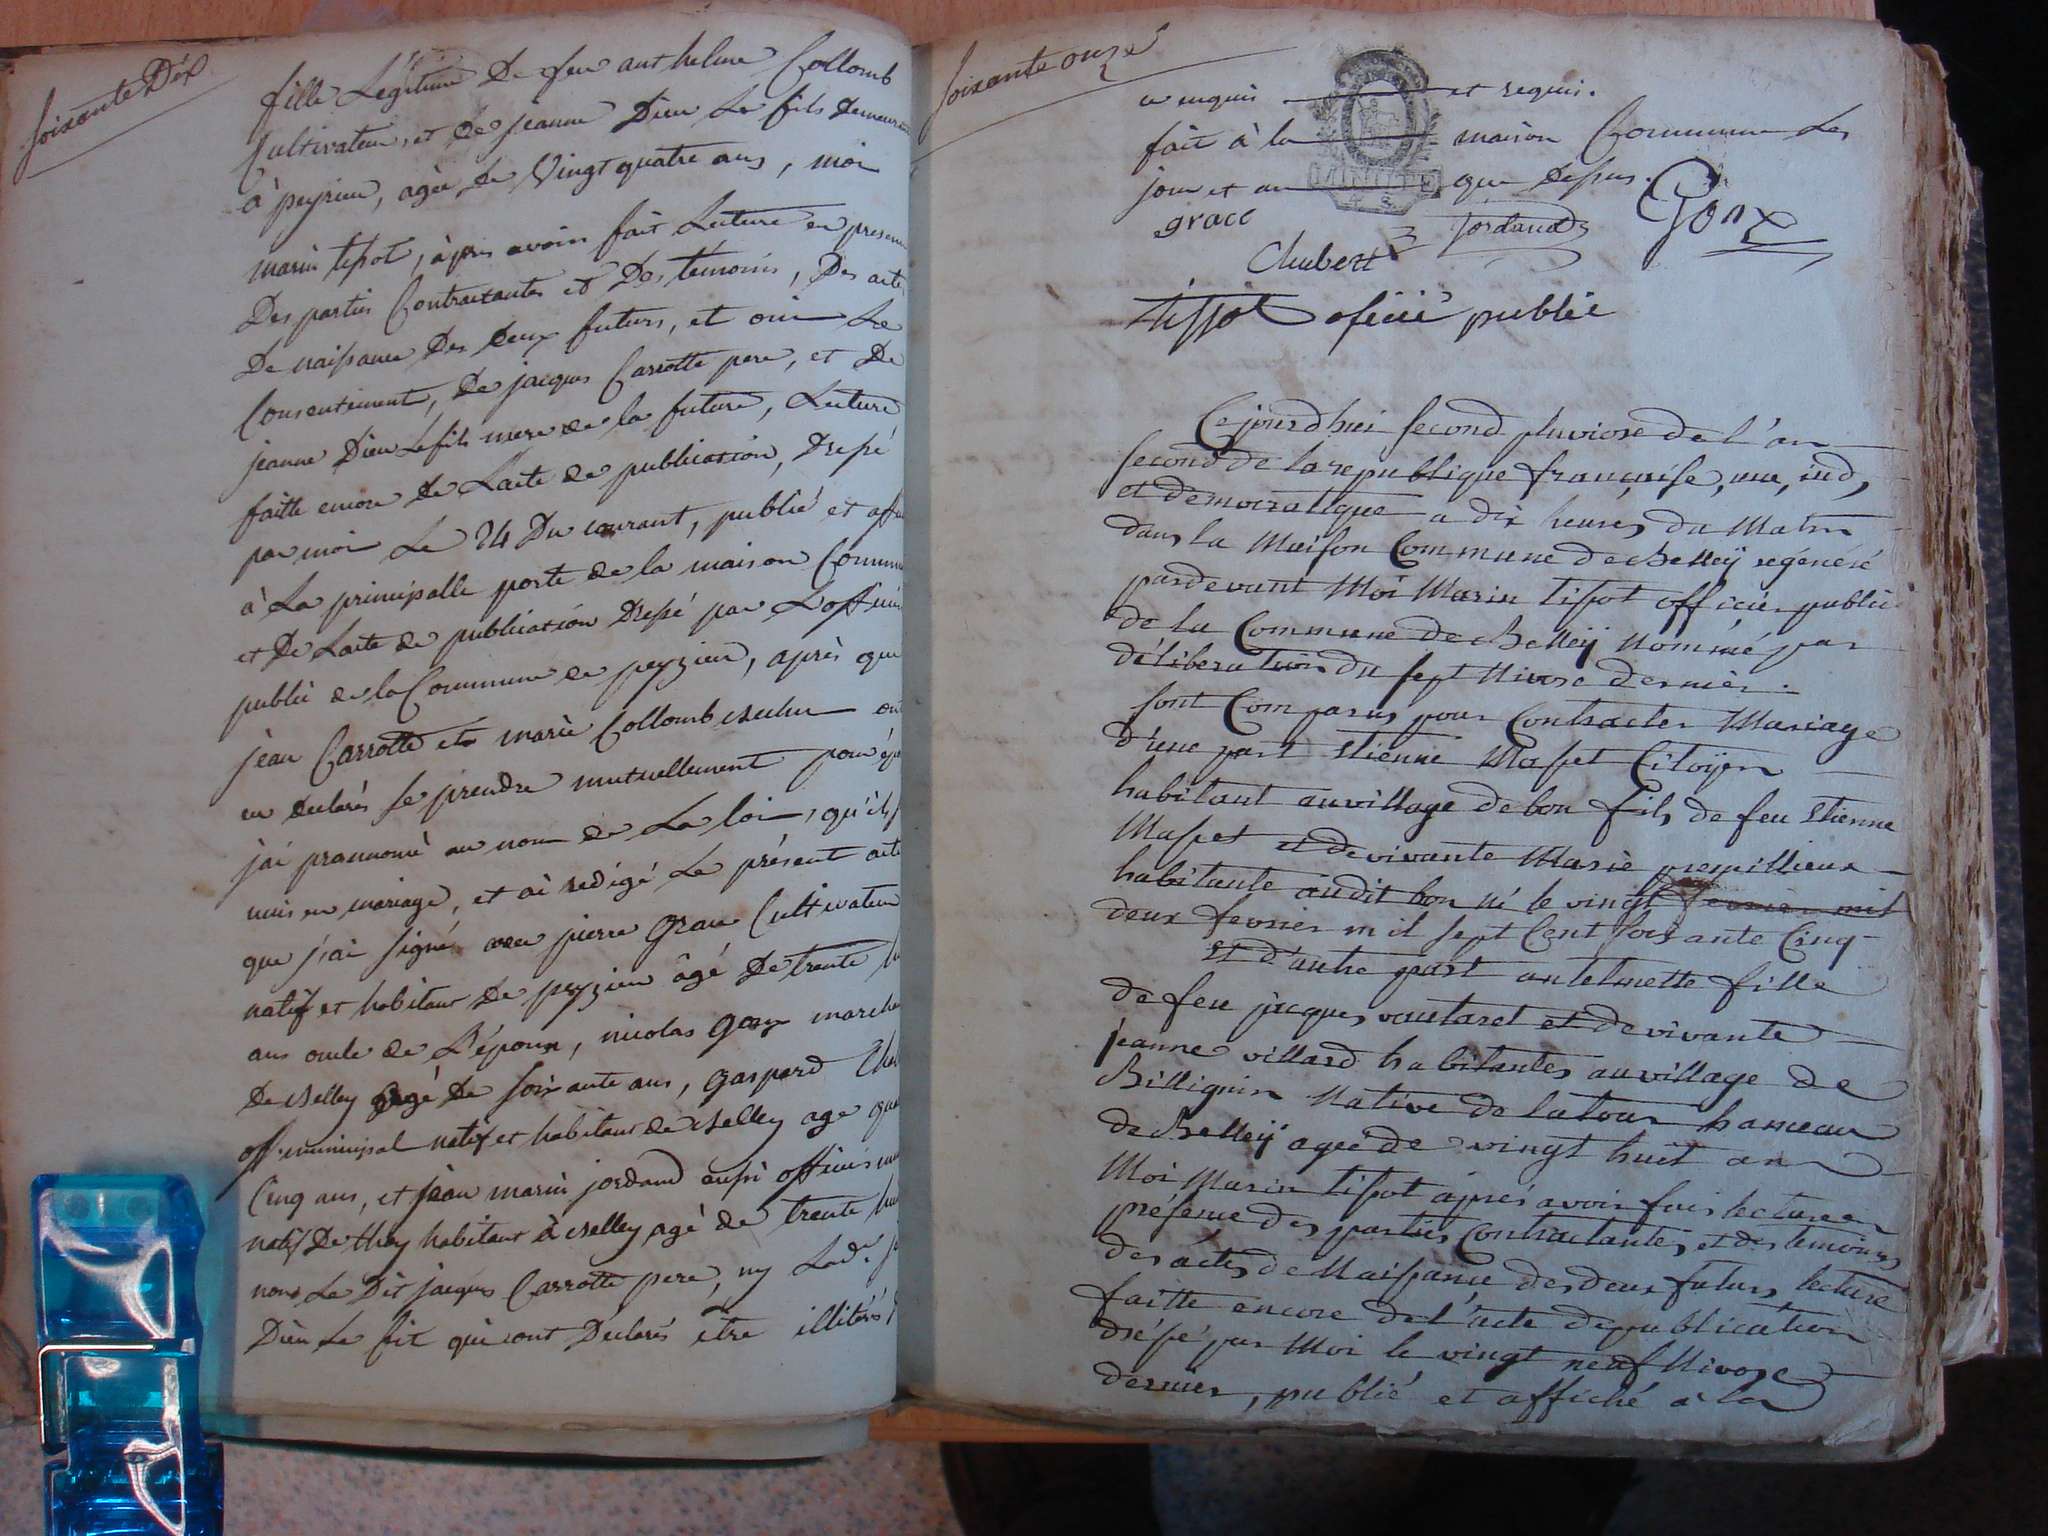 Soixante Dix
fille Légitime De feu anthelme Collomb
Cultivateur, et de jeanne Dieu Le fils demeurant
à peyzieu, agée de Vingt quatre ans, moi
marin tissot, après avoir fait Lecture en presence
Des parties Contractantes et Des témoins, Des actes
De naissance Des Deux futurs, et oui Le
Consentement, De jacques Carrotte pere, et De
jeanne Dieu Le fils mere de la future, Lecture
faitte encore de L'acte de publication, Dressé
par moi Le 24 Du courant, publié et affi
à La principalle porte de la maison Commune
et De L'acte de publication Dressé par L'officier
public de la Commune de peyzieu, après que
jean Carrotte et marie Collomb ont
declarés se prendre mutuellement pour
j'ai pronnoncé au nom de La loi, qu'ils
unis en mariage, et ai redigé Le présent acte
que j'ai signé avec pierre grace Cultivateur
natif et habitant De peyzieu âgé De trente
ans oncle de L'époux, nicolas gonx marcha
De Belley agé De soixante ans, gaspard Chu
off. municipal natif et habitant de Belley age qua
Cinq ans, et jean marin jordand aussi officier mu
natif De habitant à Belley agé de trente
non Le Dit jacques Carrotte pere, ny Lade. j
Dieu Le fit qui ont Déclarés être illitérés
Soixante onze
ce enquis et requis.
fait à la maison Commune Les
jour et an que Dessus.
MINUTE
grace
Jordand
Gonx
Chubert
Tissot oficié public
Cejourdhui second pluviose de l'an
second de la republique française, une, ind,
et democratique a dix heures du Matin
dans la Maison Commune de Belleÿ régénéré
pardevant Moi Marin tissot officier public
de la Commune de Belleÿ Nommé par
déliberation du sept Nivose dernier.
sont Comparus pour Contracter Mariage
d'une part Etienne Masset Citoÿen
habitant au village de bon fils de feu Etienne
Masset et de vivante Marie premillieux
habitante audit bon né le vingt fevrier mil
deux fevrier mil sept Cent soixante Cinq
Et d'autre part antelmette fille
de feu jacques vautaret et de vivante
jeanne villard habitantes au village de
Billignin Native de la tour hameau
de Belleÿ ageé de vingt huit an
Moi Marin tissot apres avoir fais lecture en
présence des parties Contractantes et des temoins,
des actes de Naissance des deux futurs lecture
faitte encore de l'acte de publication
dréssé par Moi le vingt neuf Nivose
dernier, publié et affiché a la